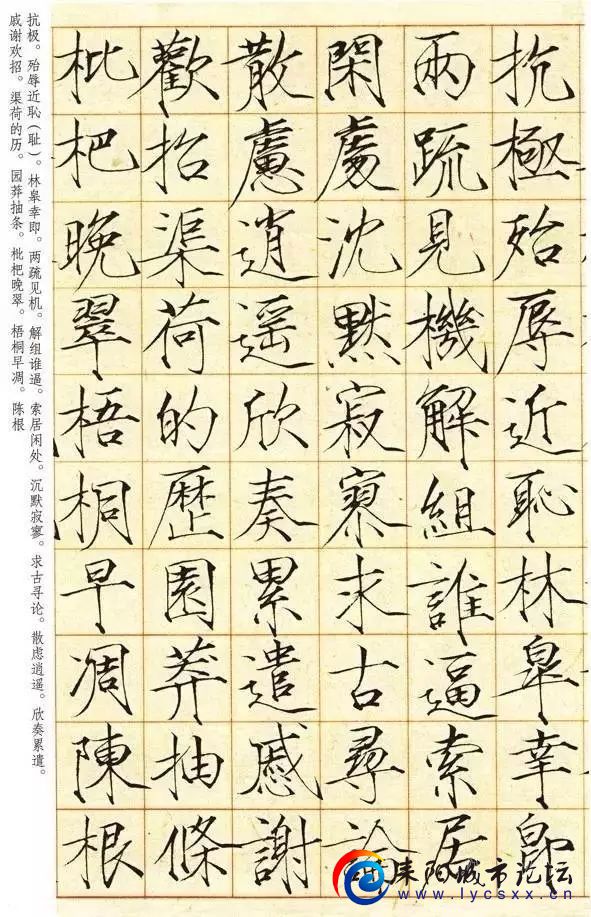 抗極殆辱近恥林皐幸即
兩疏見機解組誰逼索居
閑處沈默寂寥求古尋論
散慮逍遥欣奏累遣慼謝
歡招渠荷的歷園莽抽條
枇杷晚翠梧桐早凋陳根
抗极。殆辱近恥（耻）。林皋幸即。两疏见机。解组谁逼。索居闲处。沉默寂寥。求古寻论。散虑逍遥。欣奏累遣。
戚谢欢招。渠荷的历。园莽抽条。枇杷晚翠。梧桐早凋。陈根
耒阳城市论坛
www.lycsxx.cn